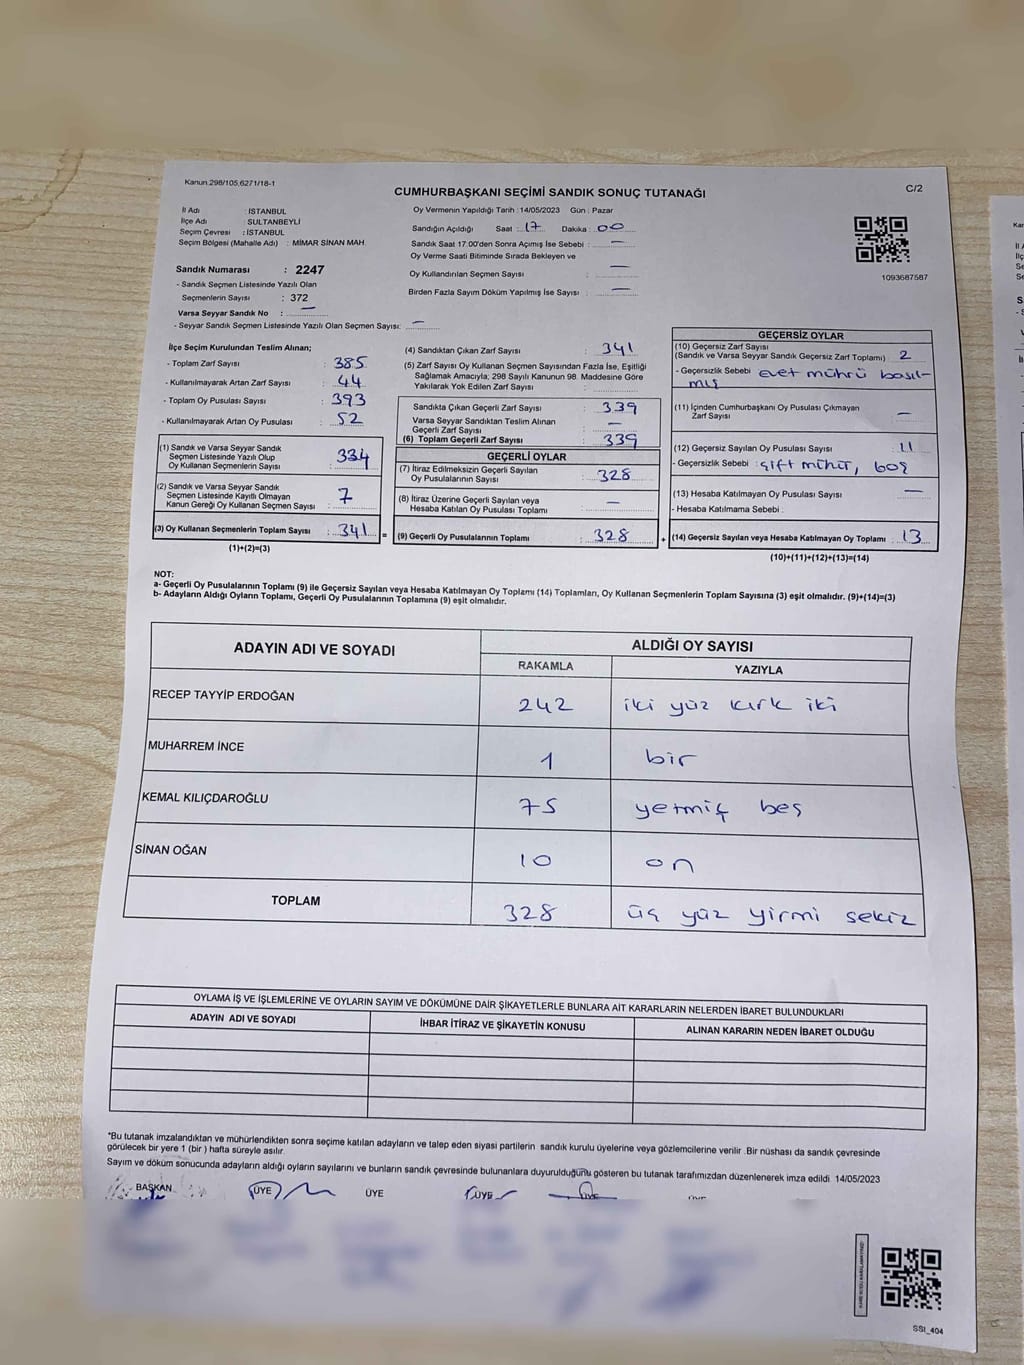 Kanun.298/105,6271/18-1
C/2
CUMHURBAŞKANI SEÇİMİ SANDIK SONUÇ TUTANAĞI
İl Adı : İSTANBUL
İlçe Adı : SULTANBEYLİ
Seçim Çevresi : İSTANBUL
Seçim Bölgesi (Mahalle Adı) : MİMAR SİNAN MAH.
Oy Vermenin Yapıldığı Tarih :14/05/2023 Gün : Pazar
Sandığın Açıldığı Saat :17 Dakika :00
Sandık Saat 17.00'den Sonra Açımış İse Sebebi : —
Oy Verme Saati Bitiminde Sırada Bekleyen ve
Oy Kullandırılan Seçmen Sayısı : —
Birden Fazla Sayım Döküm Yapılmış İse Sayısı : —
1093687587
Sandık Numarası : 2247
- Sandık Seçmen Listesinde Yazılı Olan
Seçmenlerin Sayısı : 372
Varsa Seyyar Sandık No : —
- Seyyar Sandık Seçmen Listesinde Yazılı Olan Seçmen Sayısı: —
İlçe Seçim Kurulundan Teslim Alınan;
- Toplam Zarf Sayısı : 385
- Kullanılmayarak Artan Zarf Sayısı : 44
- Toplam Oy Pusulası Sayısı : 393
- Kullanılmayarak Artan Oy Pusulası : 52
(1) Sandık ve Varsa Seyyar Sandık
Seçmen Listesinde Yazılı Olup
Oy Kullanan Seçmenlerin Sayısı : 334
(2) Sandık ve Varsa Seyyar Sandık
Seçmen Listesinde Kayıtlı Olmayan
Kanun Gereği Oy Kullanan Seçmen Sayısı : 7
(3) Oy Kullanan Seçmenlerin Toplam Sayısı : 341
(1)+(2)=(3)
=
(4) Sandıktan Çıkan Zarf Sayısı : 341
(5) Zarf Sayısı Oy Kullanan Seçmen Sayısından Fazla İse, Eşitliği
Sağlamak Amacıyla; 298 Sayılı Kanunun 98. Maddesine Göre
Yakılarak Yok Edilen Zarf Sayısı :
Sandıkta Çıkan Geçerli Zarf Sayısı : 339
Varsa Seyyar Sandıktan Teslim Alınan
Geçerli Zarf Sayısı : —
(6) Toplam Geçerli Zarf Sayısı : 339
GEÇERLİ OYLAR
(7) İtiraz Edilmeksizin Geçerli Sayılan
Oy Pusulalarının Sayısı : 328
(8) İtiraz Üzerine Geçerli Sayılan veya
Hesaba Katılan Oy Pusulası Toplamı : —
(9) Geçerli Oy Pusulalarının Toplamı : 328
+
GEÇERSİZ OYLAR
(10) Geçersiz Zarf Sayısı
(Sandık ve Varsa Seyyar Sandık Geçersiz Zarf Toplamı) : 2
- Geçersizlik Sebebi : evet mührü basıl-
mış
(11) İçinden Cumhurbaşkanı Oy Pusulası Çıkmayan
Zarf Sayısı : —
(12) Geçersiz Sayılan Oy Pusulası Sayısı : 11
- Geçersizlik Sebebi : çift mühür, boş
(13) Hesaba Katılmayan Oy Pusulası Sayısı : —
- Hesaba Katılmama Sebebi :
(14) Geçersiz Sayılan veya Hesaba Katılmayan Oy Toplamı : 13
(10)+(11)+(12)+(13)=(14)
NOT:
a- Geçerli Oy Pusulalarının Toplamı (9) ile Geçersiz Sayılan veya Hesaba Katılmayan Oy Toplamı (14) Toplamları, Oy Kullanan Seçmenlerin Toplam Sayısına (3) eşit olmalıdır. (9)+(14)=(3)
b- Adayların Aldığı Oyların Toplamı, Geçerli Oy Pusulalarının Toplamına (9) eşit olmalıdır.
ADAYIN ADI VE SOYADI
ALDIĞI OY SAYISI
RAKAMLA YAZIYLA
RECEP TAYYİP ERDOĞAN 242 iki yüz kırk iki
MUHARREM İNCE 1 bir
KEMAL KILIÇDAROĞLU 75 yetmiş beş
SİNAN OĞAN 10 on
TOPLAM 328 üç yüz yirmi sekiz
OYLAMA İŞ VE İŞLEMLERİNE VE OYLARIN SAYIM VE DÖKÜMÜNE DAİR ŞİKAYETLERLE BUNLARA AİT KARARLARIN NELERDEN İBARET BULUNDUKLARI
ADAYIN ADI VE SOYADI İHBAR İTİRAZ VE ŞİKAYETİN KONUSU ALINAN KARARIN NEDEN İBARET OLDUĞU
*Bu tutanak imzalandıktan ve mühürlendikten sonra seçime katılan adayların ve talep eden siyasi partilerin sandık kurulu üyelerine veya gözlemcilerine verilir .Bir nüshası da sandık çevresinde
görülecek bir yere 1 (bir ) hafta süreyle asılır.
Sayım ve döküm sonucunda adayların aldığı oyların sayılarını ve bunların sandık çevresinde bulunanlara duyurulduğunu gösteren bu tutanak tarafımızdan düzenlenerek imza edildi 14/05/2023
BAŞKAN ÜYE ÜYE ÜYE ÜYE
SSI_404